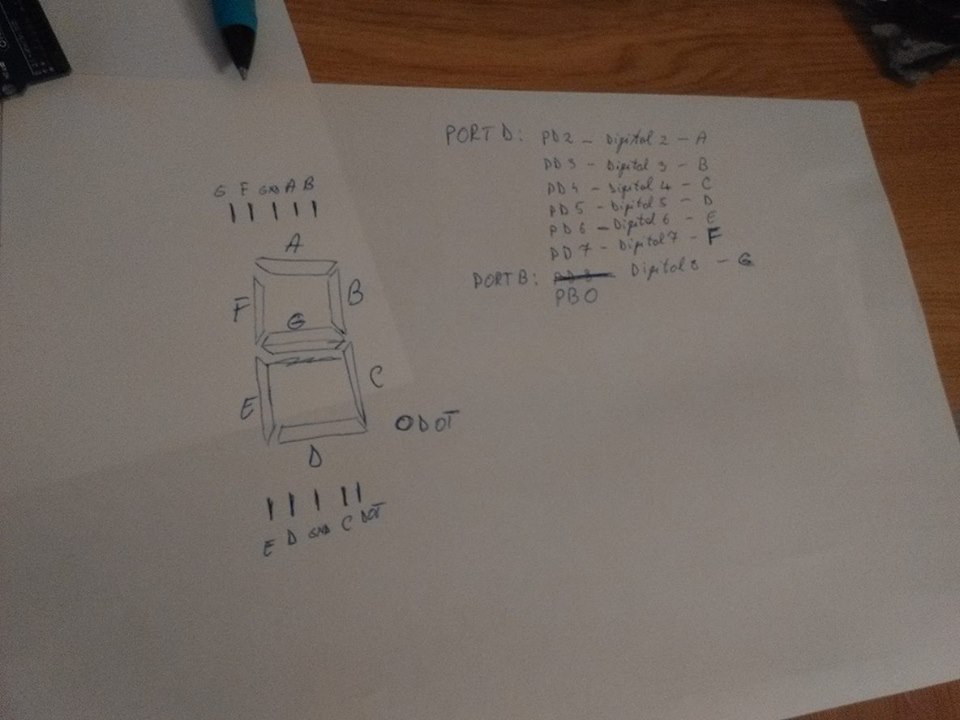 G F GND A B
A
F B
G
E C
D
O DOT
E D GND C DOT
PORT D: PD2 - Digital 2 - A
PD3 - Digital 3 - B
PD4 - Digital 4 - C
PD5 - Digital 5 - D
PD6 - Digital 6 - E
PD7 - Digital 7 - F
PORT B: Digital 8 - G
PB0